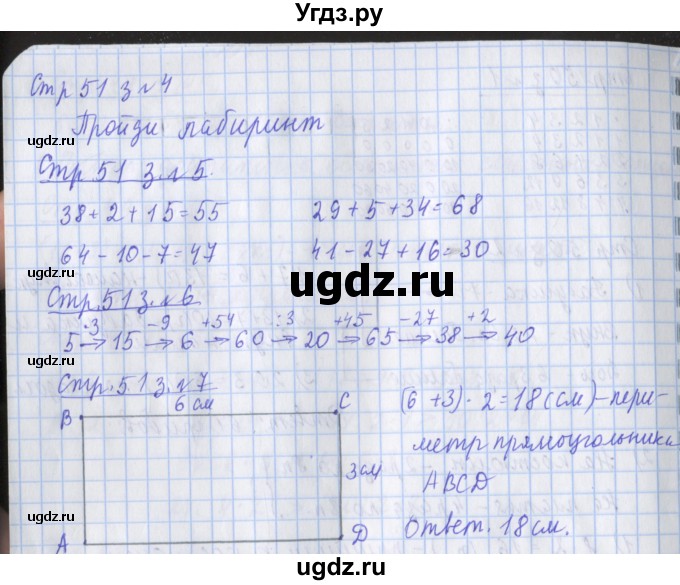 Угдз.ру
Стр 51 з №4
Пройди лабиринт
Стр 51 з. №5.
38+2+15=55 29+5+34=68
64-10-7=47 41-27+16=30
Стр. 51 з. №6
5 ·3→ 15 -9→ 6 +54→ 60 :3→ 20 +45→ 65 -27→ 38 +2→ 40
Стр. 51 з. №7
6 см
B C
3 см
A D
(6+3)·2=18(см)-пери-
метр прямоугольника
ABCD
Ответ. 18 см.
ugdz.ru
ugdz.ru
ugdz.ru
ugdz.ru
ugdz.ru
ugdz.ru
ugdz.ru
ugdz.ru
ugdz.ru
ugdz.ru
ugdz.ru